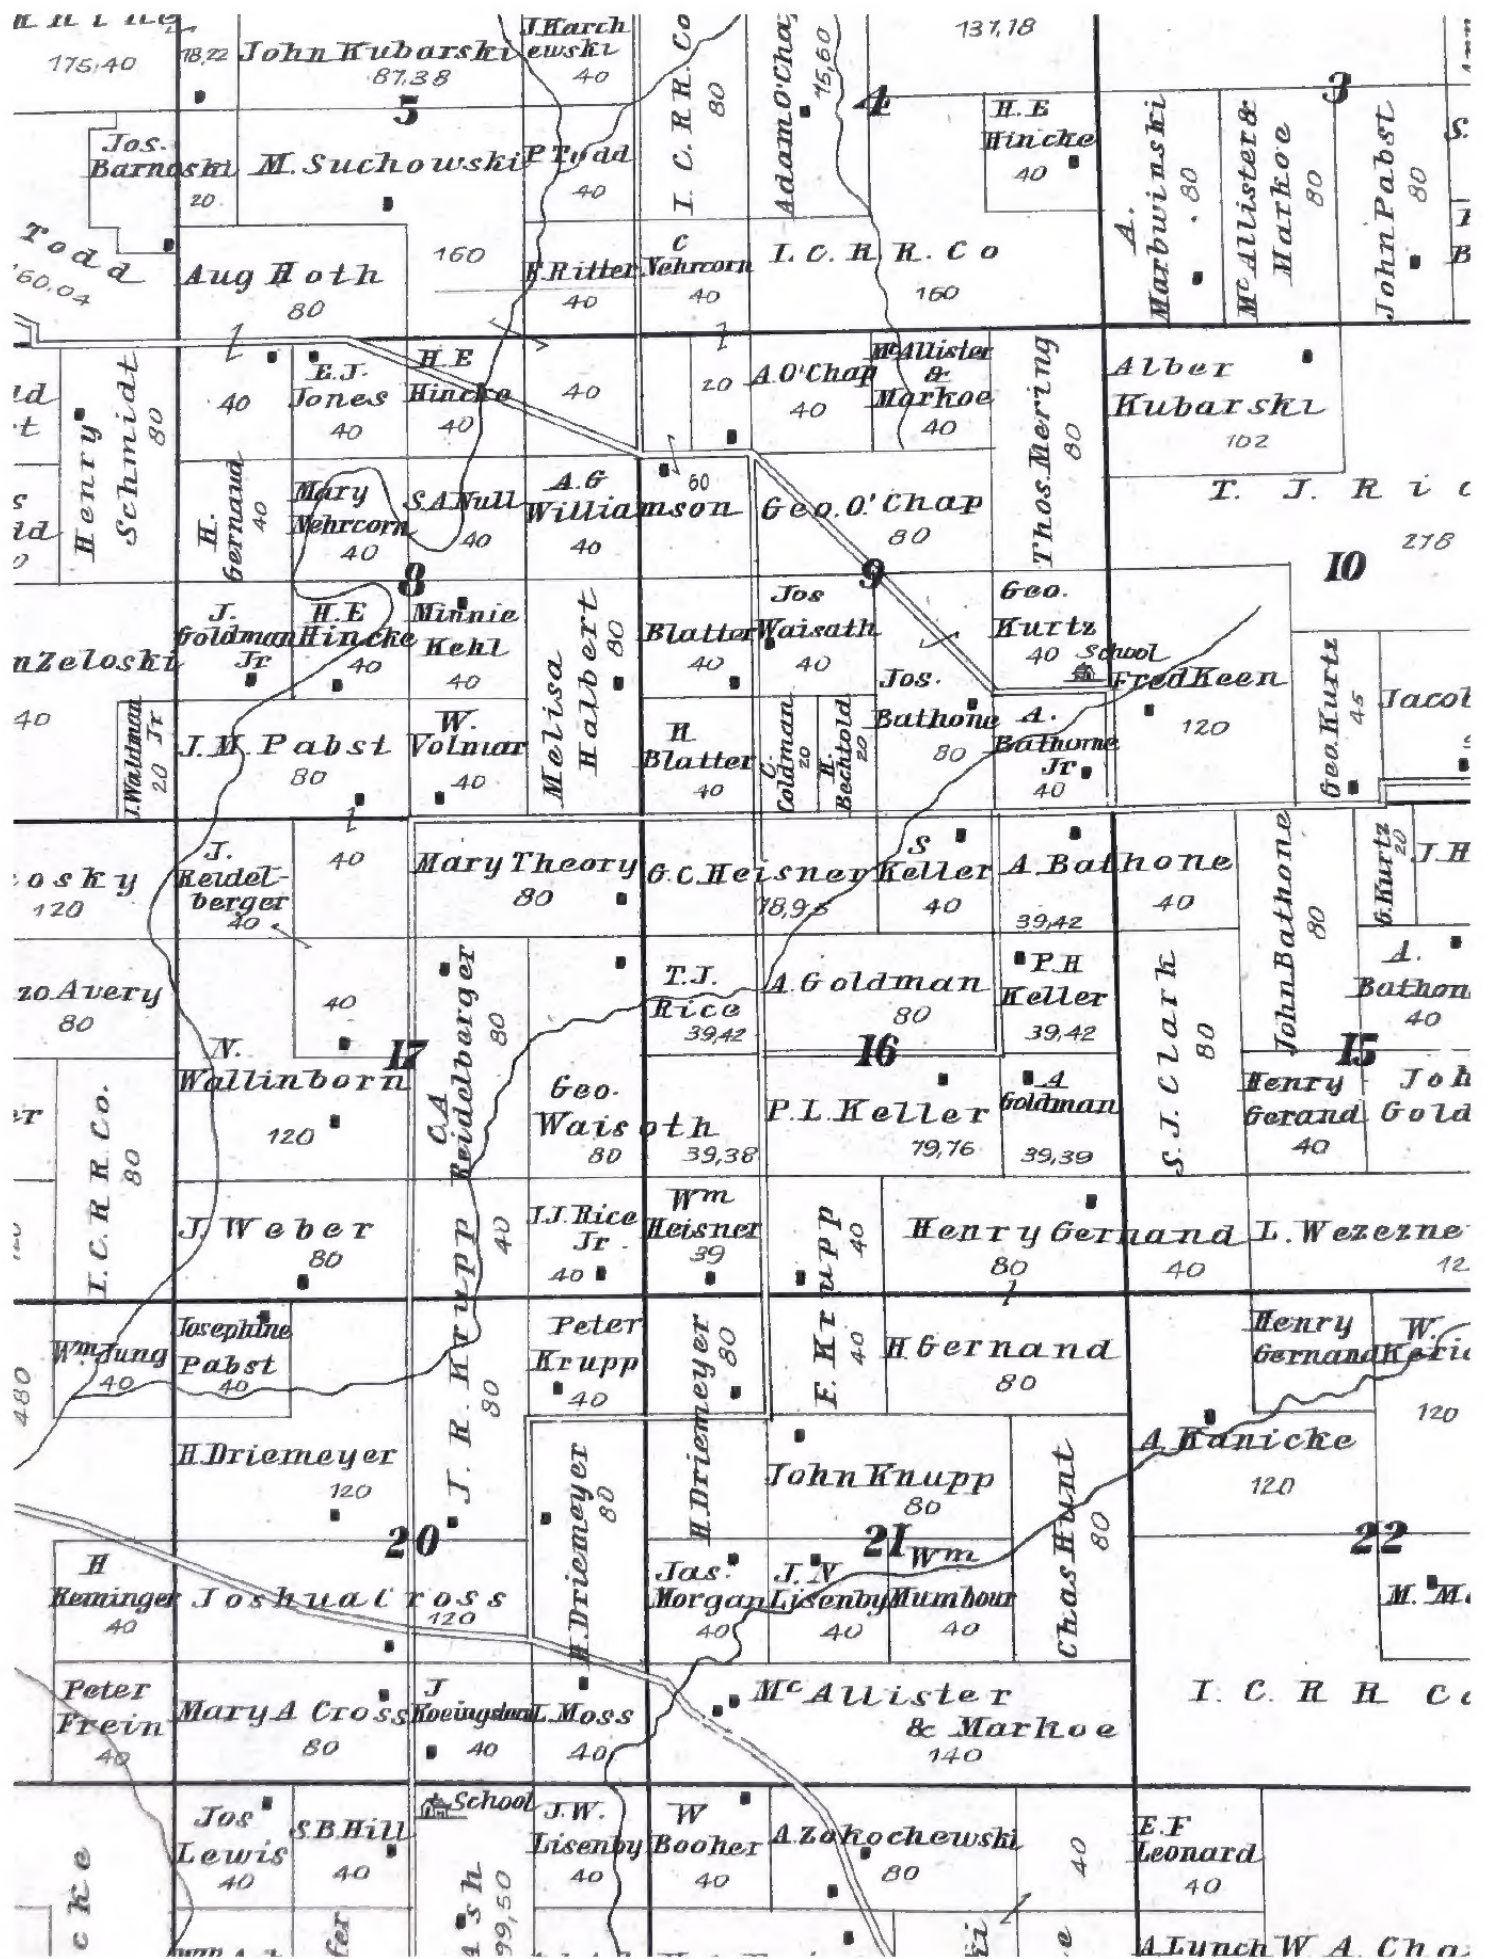 175,40
78,22
John Kubarski
87,38
J. Karch
ewski
40
I. C. R R. Co
80
Adam O'Chap
75,60
137,18
5
4
3
H. E
Hincke
40
A.
Marbwinski
80
Mc Allister &
Markoe
80
John Pabst
80
S.
Jos.
Barnoski
20
M. Suchowski
160
P. Todd
40
Todd
160,04
Aug Hoth
80
F. Ritter
40
C
Nehrcorn
40
I. C. R. R. Co
160
B
Henry
Schmidt
80
40
E. J.
Jones
40
H. E
Hincke
40
40
20
A. O'Chap
40
Mc Allister
&
Markoe
40
Thos. Mering
80
Alber
Kubarski
102
H.
Gernand
40
Mary
Nehrcorn
40
S. A. Null
40
A. G
Williamson
40
60
Geo. O'Chap
80
T. J. Ric
278
8
9
10
n Zeloski
40
J.
Goldman
Jr
H. E
Hincke
40
Minnie
Kehl
40
Melisa
Halbert
80
Blatter
40
Jos
Waisath
40
Geo.
Kurtz
40
School
Fred Keen
120
Geo. Kurtz
45
Jacob
J. Waldman
20 Jr
J. M. Pabst
80
W.
Volmar
40
H
Blatter
40
C.
Goldman
20
H.
Bechtold
20
Jos.
Bathone
80
A.
Bathorne
Jr
40
osky
120
J.
Reidel-
berger
40
40
Mary Theory
80
G. C. Heisner
78,95
S
Keller
40
A. Bathone
39,42
40
John Bathone
80
G. Kurtz
20
J. H
zo Avery
80
40
C. A
Reidelberger
80
T. J.
Rice
39,42
A. Goldman
80
P. H
Keller
39,42
S. J. Clark
80
A.
Bathon
40
17
16
15
N.
Wallinborn
120
I. C. R R. Co.
80
Geo.
Waisoth
80
39,38
P. L. Keller
79,76
A
Goldman
39,39
Henry
Gerand
40
Joh
Gold
J. Weber
80
40
J. J. Rice
Jr
40
Wm
Heisner
39
F. Krupp
40
40
Henry Gernand
80
40
L. Wezezne
12
480
Wm Jung
40
Josephine
Pabst
40
J. R. Krupp
80
Peter
Krupp
40
H. Driemeyer
80
H. Gernand
80
Henry
Gernand
W.
Keric
120
H. Driemeyer
120
H. Driemeyer
80
John Knupp
80
Chas Hunt
80
A. Kanicke
120
20
21
22
H
Reminger
40
Joshua Cross
120
Jas.
Morgan
40
J. N
Lisenby
40
Wm
Mumhour
40
M. Mc
Peter
Frein
40
Mary A Cross
80
J
Koeingsten
40
L. Moss
40
Mc Allister
& Markoe
140
I. C. R R Co
cke
Jos
Lewis
40
S. B. Hill
40
School
99,50
J. W.
Lisenby
40
W
Booher
40
A. Zokochewski
80
40
E. F
Leonard
40
A. Lynch
W. A. Cha